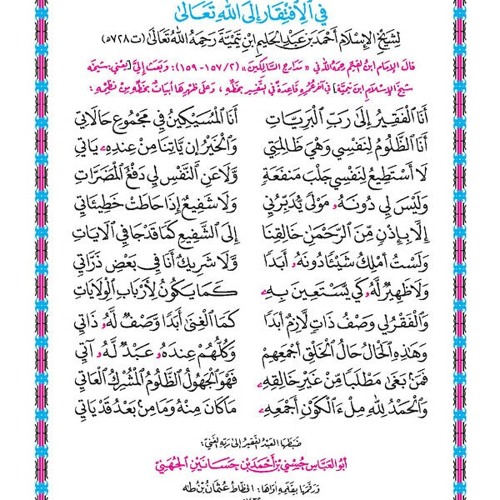 فِي الِافْتِقَارِ إِلَى اللهِ تَعَالَى
لِشَيْخِ الْإِسْلَامِ أَحْمَدَ بْنِ عَبْدِ الْحَلِيمِ ابْنِ تَيْمِيَّةَ رَحِمَهُ اللهُ تَعَالَى (ت ٧٢٨ه)
قال الإمام ابن القيم رحمه الله في «مدارج السالكين» (٢/١٥٧-١٥٩): وبعث إليَّ [يعني: شيخه
شيخ الإسلام ابن تيمية] في آخر عمره قاعدة في التفسير بخطه، وعلى ظهرها أبيات بخطه من نظمه:
أَنَا الْفَقِيرُ إِلَى رَبِّ الْبَرِيَّاتِ أَنَا الْمُسَيْكِينُ فِي مَجْمُوعِ حَالَاتِي
أَنَا الظَّلُومُ لِنَفْسِي وَهْيَ ظَالِمَتِي وَالْخَيْرُ إِنْ يَأْتِنَا مِنْ عِنْدِهِ يَاتِي
لَا أَسْتَطِيعُ لِنَفْسِي جَلْبَ مَنْفَعَةٍ وَلَا عَنِ النَّفْسِ لِي دَفْعُ الْمَضَرَّاتِ
وَلَيْسَ لِي دُونَهُ مَوْلًى يُدَبِّرُنِي وَلَا شَفِيعٌ إِذَا حَاطَتْ خَطِيئَاتِي
إِلَّا بِإِذْنٍ مِنَ الرَّحْمَنِ خَالِقِنَا إِلَى الشَّفِيعِ كَمَا قَدْ جَا فِي الْآيَاتِ
وَلَسْتُ أَمْلِكُ شَيْئًا دُونَهُ أَبَدًا وَلَا شَرِيكٌ أَنَا فِي بَعْضِ ذَرَّاتِي
وَلَا ظَهِيرٌ لَهُ كَيْ يَسْتَعِينَ بِهِ كَمَا يَكُونُ لِأَرْبَابِ الْوِلَايَاتِ
وَالْفَقْرُ لِي وَصْفُ ذَاتٍ لَازِمٌ أَبَدًا كَمَا الْغِنَى أَبَدًا وَصْفٌ لَهُ ذَاتِي
وَهَذِهِ الْحَالُ حَالُ الْخَلْقِ أَجْمَعِهِمْ وَكُلُّهُمْ عِنْدَهُ عَبْدٌ لَهُ آتِي
فَمَنْ بَغَى مَطْلَبًا مِنْ غَيْرِ خَالِقِهِ فَهْوَ الْجَهُولُ الظَّلُومُ الْمُشْرِكُ الْعَاتِي
وَالْحَمْدُ لِلهِ مِلْءَ الْكَوْنِ أَجْمَعِهِ مَا كَانَ مِنْهُ وَمَا مِنْ بَعْدُ قَدْ يَاتِي
ضبطها العبد الفقير إلى ربه الغني:
أَبُو الْعَبَّاسِ حُسْنِي بْنُ أَحْمَدَ بْنِ حَسَانَيْنِ الْجُهَنِيُّ
عُثْمَانُ بْنُ طه